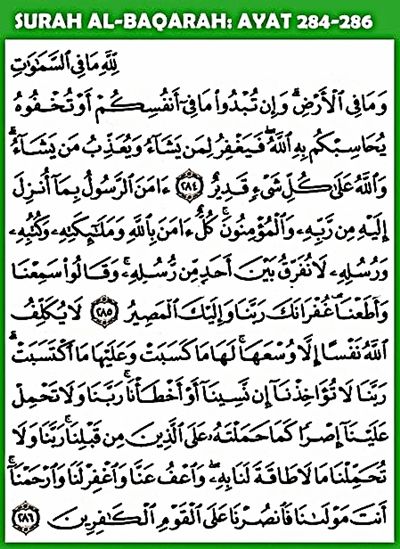 SURAH AL-BAQARAH: AYAT 284-286
لِلَّهِ مَا فِي السَّمَاوَاتِ
وَمَا فِي الْأَرْضِ ۗ وَإِن تُبْدُوا مَا فِي أَنفُسِكُمْ أَوْ تُخْفُوهُ
يُحَاسِبْكُم بِهِ اللَّهُ ۖ فَيَغْفِرُ لِمَن يَشَاءُ وَيُعَذِّبُ مَن يَشَاءُ ۗ
وَاللَّهُ عَلَىٰ كُلِّ شَيْءٍ قَدِيرٌ ﴿٢٨٤﴾ ءَامَنَ الرَّسُولُ بِمَا أُنزِلَ
إِلَيْهِ مِن رَّبِّهِ وَالْمُؤْمِنُونَ ۚ كُلٌّ ءَامَنَ بِاللَّهِ وَمَلَائِكَتِهِ وَكُتُبِهِ
وَرُسُلِهِ لَا نُفَرِّقُ بَيْنَ أَحَدٍ مِّن رُّسُلِهِ ۚ وَقَالُوا سَمِعْنَا
وَأَطَعْنَا ۖ غُفْرَانَكَ رَبَّنَا وَإِلَيْكَ الْمَصِيرُ ﴿٢٨٥﴾ لَا يُكَلِّفُ
اللَّهُ نَفْسًا إِلَّا وُسْعَهَا ۚ لَهَا مَا كَسَبَتْ وَعَلَيْهَا مَا اكْتَسَبَتْ ۗ
رَبَّنَا لَا تُؤَاخِذْنَا إِن نَّسِينَا أَوْ أَخْطَأْنَا ۚ رَبَّنَا وَلَا تَحْمِلْ
عَلَيْنَا إِصْرًا كَمَا حَمَلْتَهُ عَلَى الَّذِينَ مِن قَبْلِنَا ۚ رَبَّنَا وَلَا
تُحَمِّلْنَا مَا لَا طَاقَةَ لَنَا بِهِ ۖ وَاعْفُ عَنَّا وَاغْفِرْ لَنَا وَارْحَمْنَا ۚ
أَنتَ مَوْلَانَا فَانصُرْنَا عَلَى الْقَوْمِ الْكَافِرِينَ ﴿٢٨٦﴾